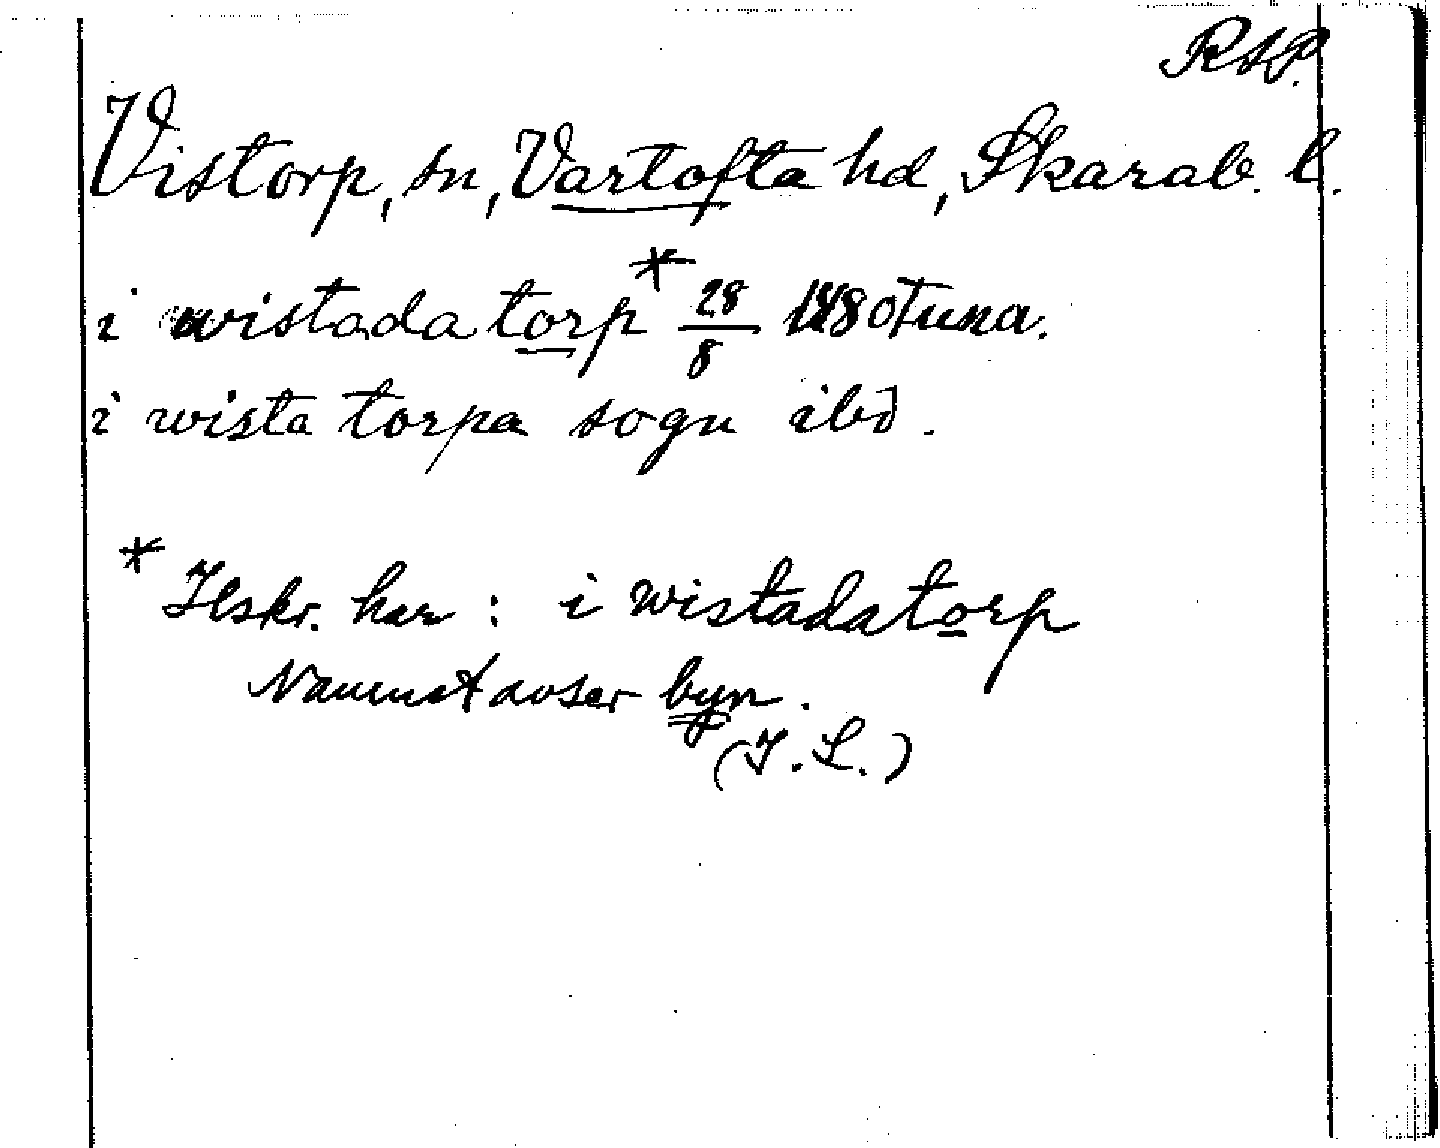 RAP.
Vistorp, sn, Vartofta hd, Skarab. l.
i wistada torp* 28/8 1480 Tuna.
i wista torpa sogn ibd.
* Hskr. har: i wistadatorp
Namnet avser byn.
(I. L.)